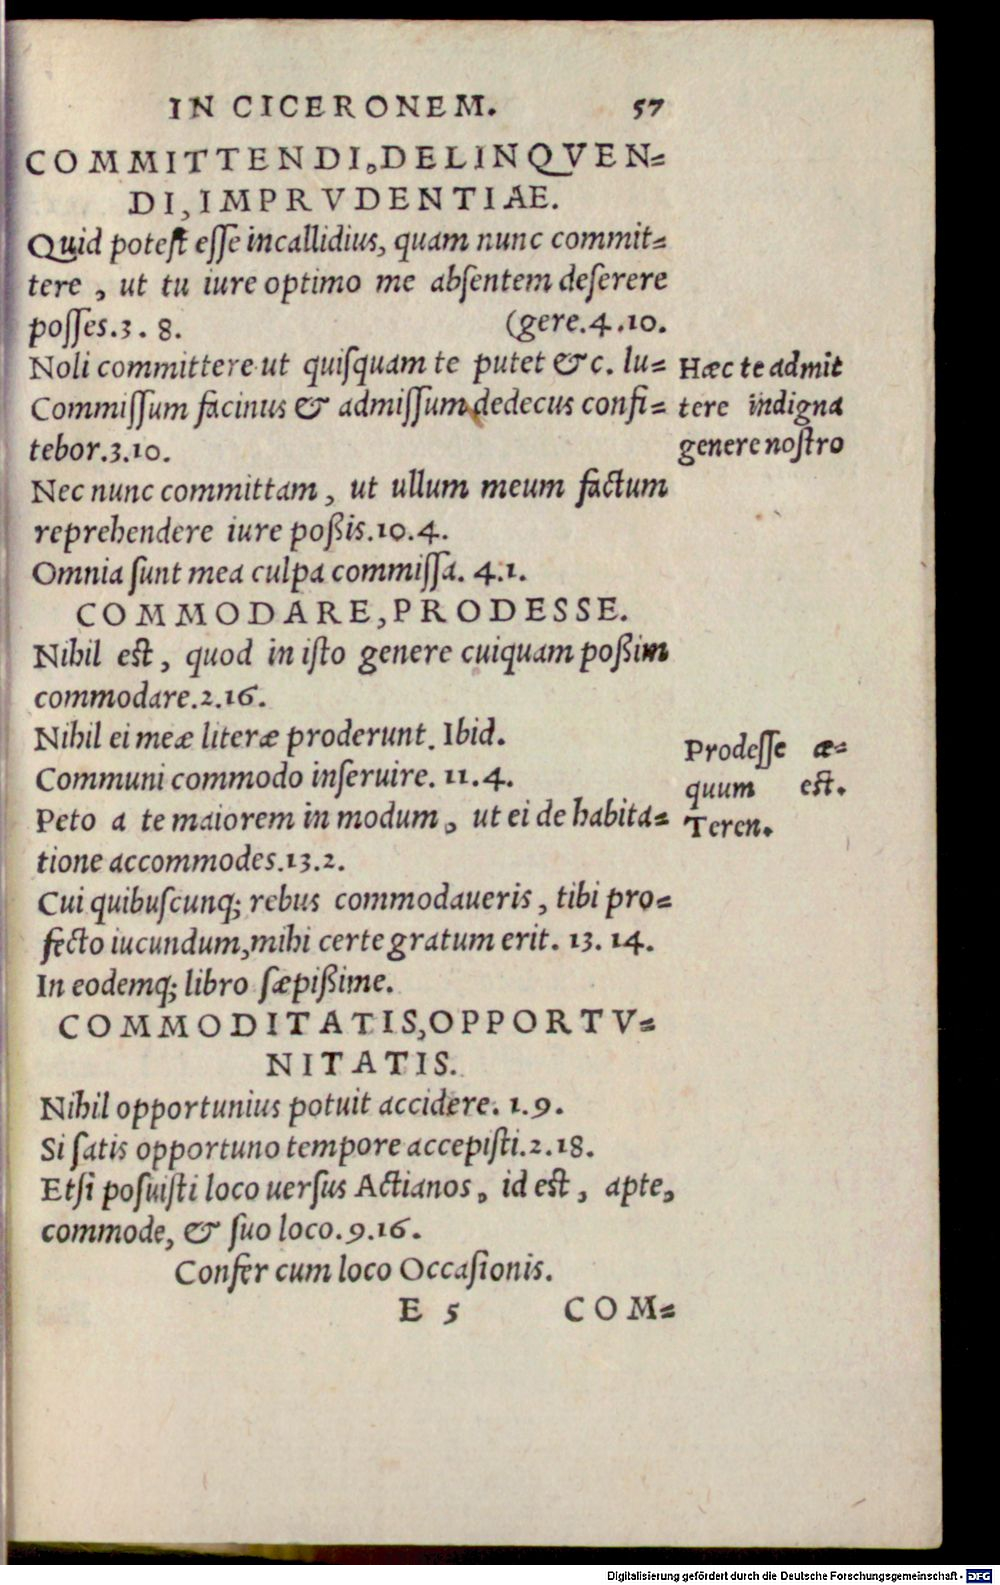 IN CICERONEM. 57
COMMITTENDI, DELINQVEN-
DI, IMPRVDENTIAE.
Quid potest eſſe incallidius, quam nunc commit-
tere , ut tu iure optimo me abſentem deſerere
poſſes.3. 8. (gere.4.10.
Noli committere ut quiſquam te putet &c. lu-
Commiſſum facinus & admiſſum dedecus confi-
tebor.3.10.
Nec nunc committam, ut ullum meum factum
reprehendere iure poßis.10.4.
Omnia ſunt mea culpa commiſſa. 4.1.
Hæc te admit
tere indigna
genere noſtro
COMMODARE, PRODESSE.
Nihil est, quod in iſto genere cuiquam poßim
commodare.2.16.
Nihil ei meæ literæ proderunt. Ibid.
Communi commodo inſeruire. 11.4.
Peto a te maiorem in modum, ut ei de habita-
tione accommodes.13.2.
Cui quibuſcunq; rebus commodaueris, tibi pro-
fecto iucundum, mihi certe gratum erit. 13. 14.
In eodemq; libro ſæpißime.
Prodeſſe æ-
quum est.
Teren.
COMMODITATIS, OPPORTV-
NITATIS.
Nihil opportunius potuit accidere. 1.9.
Si ſatis opportuno tempore accepiſti.2.18.
Etſi poſuiſti loco uerſus Actianos, id est, apte,
commode, & ſuo loco.9.16.
Confer cum loco Occaſionis.
E 5 COM-
Digitalisierung gefördert durch die Deutsche Forschungsgemeinschaft - DFG